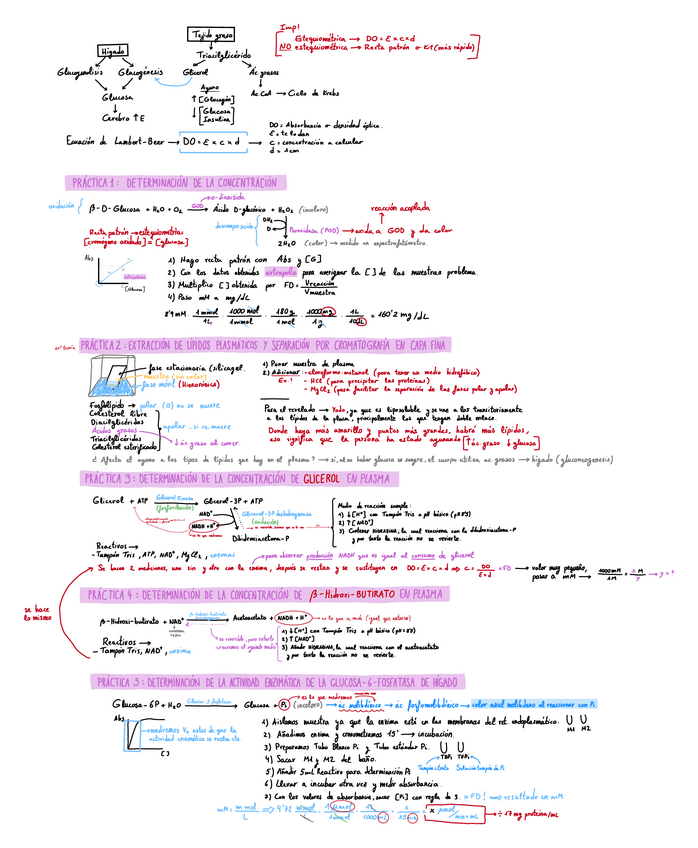 Imp!
Estequiométrica → DO = Ɛ × c × d
NO estequiométrica → Recta patrón o Kit (más rápido)
Tejido graso
Hígado
Triacilglicérido
Glucogenolisis Glucogénesis Glicerol Ác. grasos
Glucosa
Cerebro ↑E
Ayuno
↑ [Glucagón]
↓ [Glucosa
Insulina]
Ac. CoA → Ciclo de Krebs
Ecuación de Lambert-Beer → DO = Ɛ × c × d
DO = Absorbancia o densidad óptica.
Ɛ = te lo dan
c = concentración a calcular
d = 1 cm
PRÁCTICA 1: DETERMINACIÓN DE LA CONCENTRACIÓN
oxidación
β-D-Glucosa + H₂O + O₂ GOD → Ácido D-glucónico + H₂O₂ (incoloro)
reacción acoplada
descomposición
DH₂
D
Peroxidasa (POD) → oxida a GOD y da color
2H₂O (color) → medido en espectrofotómetro.
Recta patrón → estequiometría:
[cromógeno oxidado] = [glucosa]
Abs
[Glucosa]
1) Hago recta patrón con Abs y [G]
2) Con los datos obtenidos extrapolo para averiguar la [ ] de las muestras problema.
3) Multiplico [ ] obtenida por FD = Vreacción / Vmuestra
4) Paso mM a mg/dL
8'9 mM · 1 mmol / 1L · 1000 mol / 1 mmol · 180 g / 1 mol · 1000 mg / 1 g · 1L / 10 dL = 160'2 mg/dL
PRÁCTICA 2: EXTRACCIÓN DE LÍPIDOS PLASMÁTICOS Y SEPARACIÓN POR CROMATOGRAFÍA EN CAPA FINA
fase estacionaria (silicagel)
muestra (sin color)
fase móvil (HIDROFÓBICA)
1) Poner muestra de plasma
2) Adicionar: - cloroformo metanol (para tener un medio hidrofóbico)
Ex.! - HCl (para precipitar las proteínas)
- MgCl₂ (para facilitar la separación de las fases polar y apolar)
Fosfolípido → polar (0) no se mueve
Colesterol libre
Diacilglicéridos
Ácidos grasos
Triacilglicéridos
Colesterol esterificado
apolar, si se mueve
↓ ác graso al comer.
Para el revelado → Yodo, ya que es liposoluble y se une a los transitoriamente
a los lípidos de la placa, principalmente los que tengan doble enlace.
Donde haya más amarillo y puntos más grandes, habrá más lípidos,
eso significa que la persona ha estado ayunando [↑ác graso ↓glucosa]
¿Afecta el ayuno a los tipos de lípidos que hay en el plasma? → sí, al no haber glucosa en sangre, el cuerpo utiliza ac grasos → hígado (gluconeogenesis)
PRÁCTICA 3: DETERMINACIÓN DE LA CONCENTRACIÓN DE GLICEROL EN PLASMA
Glicerol + ATP Glicerol kinasa (fosforilación) → Glicerol-3P + ATP
NAD⁺
NADH + H⁺
Glicerol-3P deshidrogenasa
(oxidación)
Dihidroxiacetona-P
Medio de reacción cumple:
1) ↓[H⁺] con Tampón Tris a pH básico (pH 8'9)
2) ↑[NAD⁺]
3) Contener HIDRAZINA, la cual reacciona con la dihidroxiacetona-P
y por tanto la reacción no se revierte.
Reactivos →
- Tampón Tris, ATP, NAD⁺, MgCl₂, enzimas
para observar producción NADH que es igual al consumo de glicerol
Se hacen 2 mediciones, una sin y otra con la enzima, después se restan y se sustituyen en DO = Ɛ × c × d ⇒ c = DO / Ɛ × d × FD → valor muy pequeño,
pasar a mM → 1000 mM / 1M = x M / y → y = ?
se hace
lo mismo
PRÁCTICA 4: DETERMINACIÓN DE LA CONCENTRACIÓN DE β-Hidroxi-BUTIRATO EN PLASMA
β-Hidroxi-butirato + NAD⁺ → Acetoacetato + NADH + H⁺ → es lo que se mide (igual que anterior)
es reversible, para evitarlo
creamos el siguiente medio
1) ↓[H⁺] con Tampón Tris a pH básico
2) ↑[NAD⁺]
3) Añadir HIDRAZINA, la cual reacciona con el acetoacetato
y por tanto la reacción no se revierte.
Reactivos →
- Tampón Tris, NAD⁺, enzima
PRÁCTICA 5: DETERMINACIÓN DE LA ACTIVIDAD ENZIMÁTICA DE LA GLUCOSA-6-FOSFATASA DE HÍGADO
es lo que medimos
Glucosa-6P + H₂O Glucosa-6-fosfatasa → Glucosa + Pi (incoloro) → ác molíbdico → ác fosfomolíbdico → color azul molibdeno al reaccionar con Pi.
Abs
[ ]
mediremos V₀ antes de que la
actividad enzimática se vuelva cte.
1) Aislamos muestra ya que la enzima está en las membranas del ret. endoplasmático.
M1 M2
2) Añadimos enzima y cronometramos 15' → incubación.
3) Preparamos Tubo Blanco Pi y Tubo estándar Pi.
4) Sacar M1 y M2 del baño.
5) Añadir 5mL Reactivo para determinación Pi
6) Llevar a incubar otra vez y medir absorbancia.
7) Con los valores de absorbancia, sacar [Pi] con regla de 3. × FD! → resultado en mM
mM = mmol / L ⇒ 4'72 mmol / L · 1 µmol / 1 mmol · 1L / 1000 mL · 1 / 15 min = x µmol / min × mL → ÷ 17 mg proteína/mL